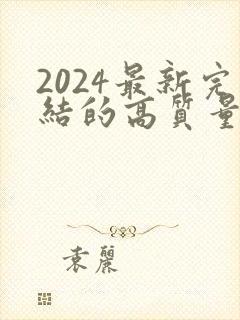 2024最新完
結的高質量
袁麗